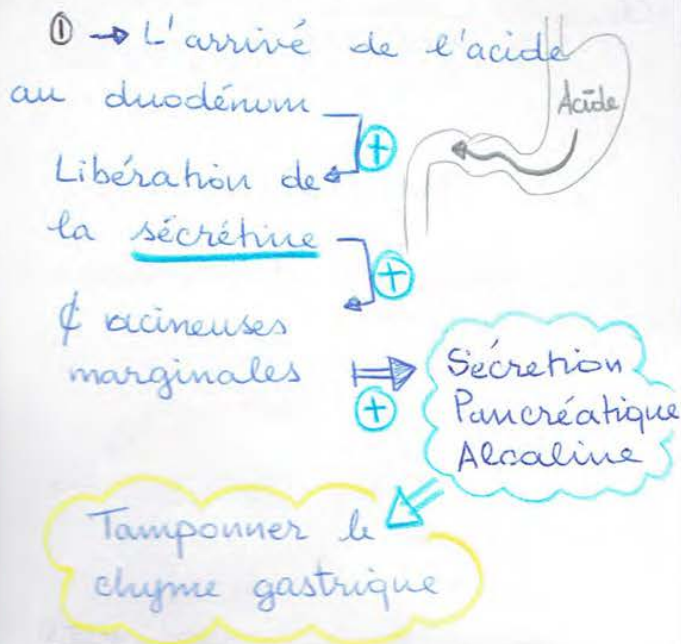 ① → L'arrivé de l'acide
au duodénum
Acide
+
Libération de
la sécrétine
+
₵ acineuses
marginales
+
Sécretion
Pancréatique
Alcaline
Tamponner le
chyme gastrique